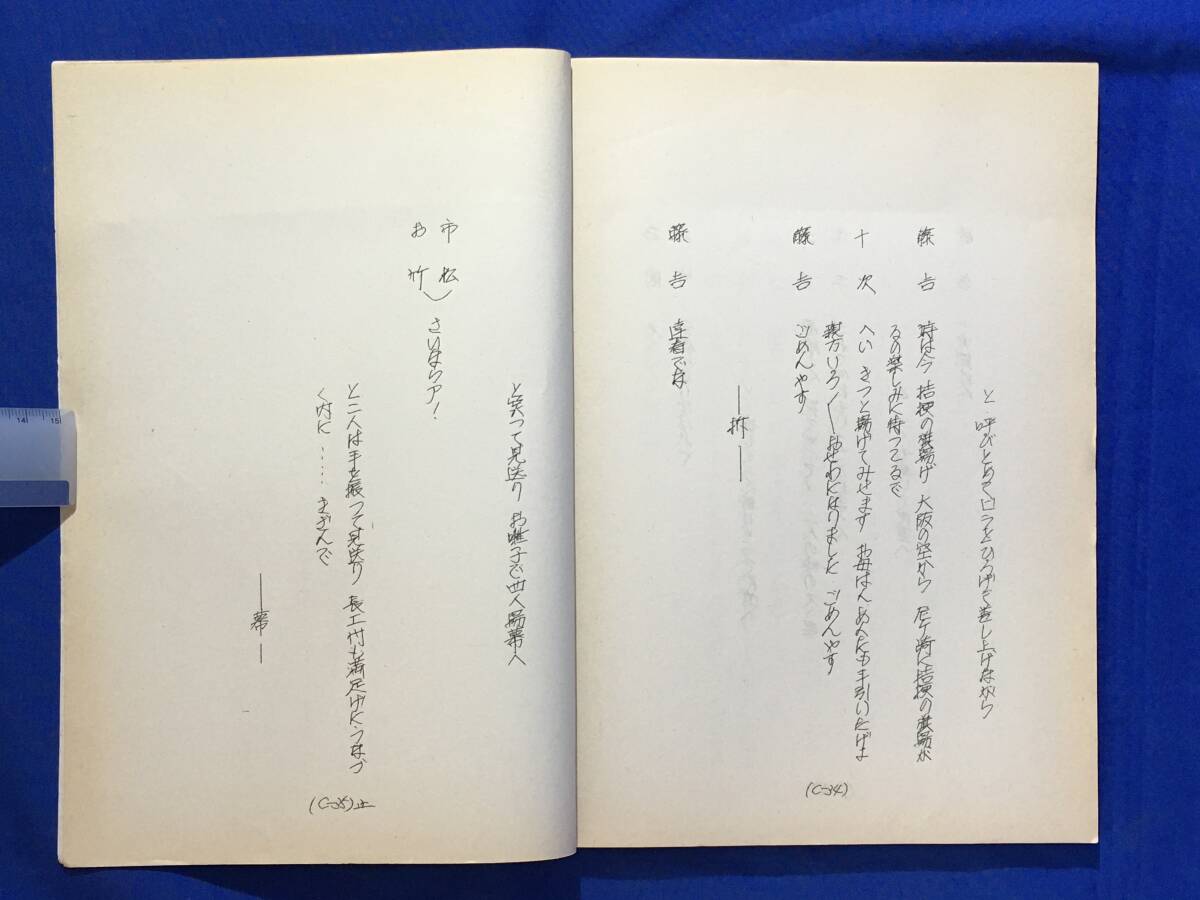 と 呼びとめて ラをひろげて差し上げながら
藤吉 時は今 桔梗の旗揚げ 大阪の空から 尼ケ崎に桔梗の旗揚が
るの楽しみに待つてるで
十次 へい きつと揚げてみせます お母はん 手引いたげよ
親方いろ〳〵おせわになりました ごめんやす
藤吉 ごめんやす
―柝―
藤吉 達者でな
(C-34)
と笑つて見送り お囃子で四人揚幕へ
市松
お竹) さいならアー!
と二人は手を振つて見送り 満足げにうなづ
く内に …… きざんで
―幕―
(C-35)止
14 15